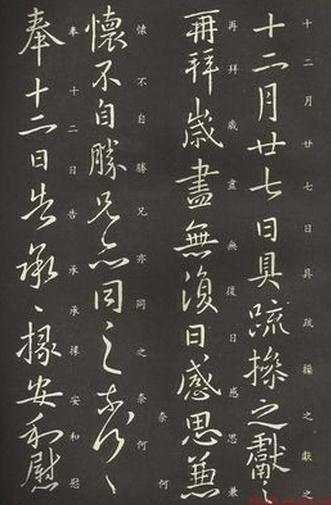 十二月廿七日具疏操之獻之
十二月廿七日具疏操之獻之
再拜歲盡無復日感思兼
再拜歲盡無復日感思兼
懷不自勝兄亦同之奈何奈何
懷不自勝兄亦同之奈何〻
奉十二日告承承掾安和慰
奉十二日告承〻掾安和慰